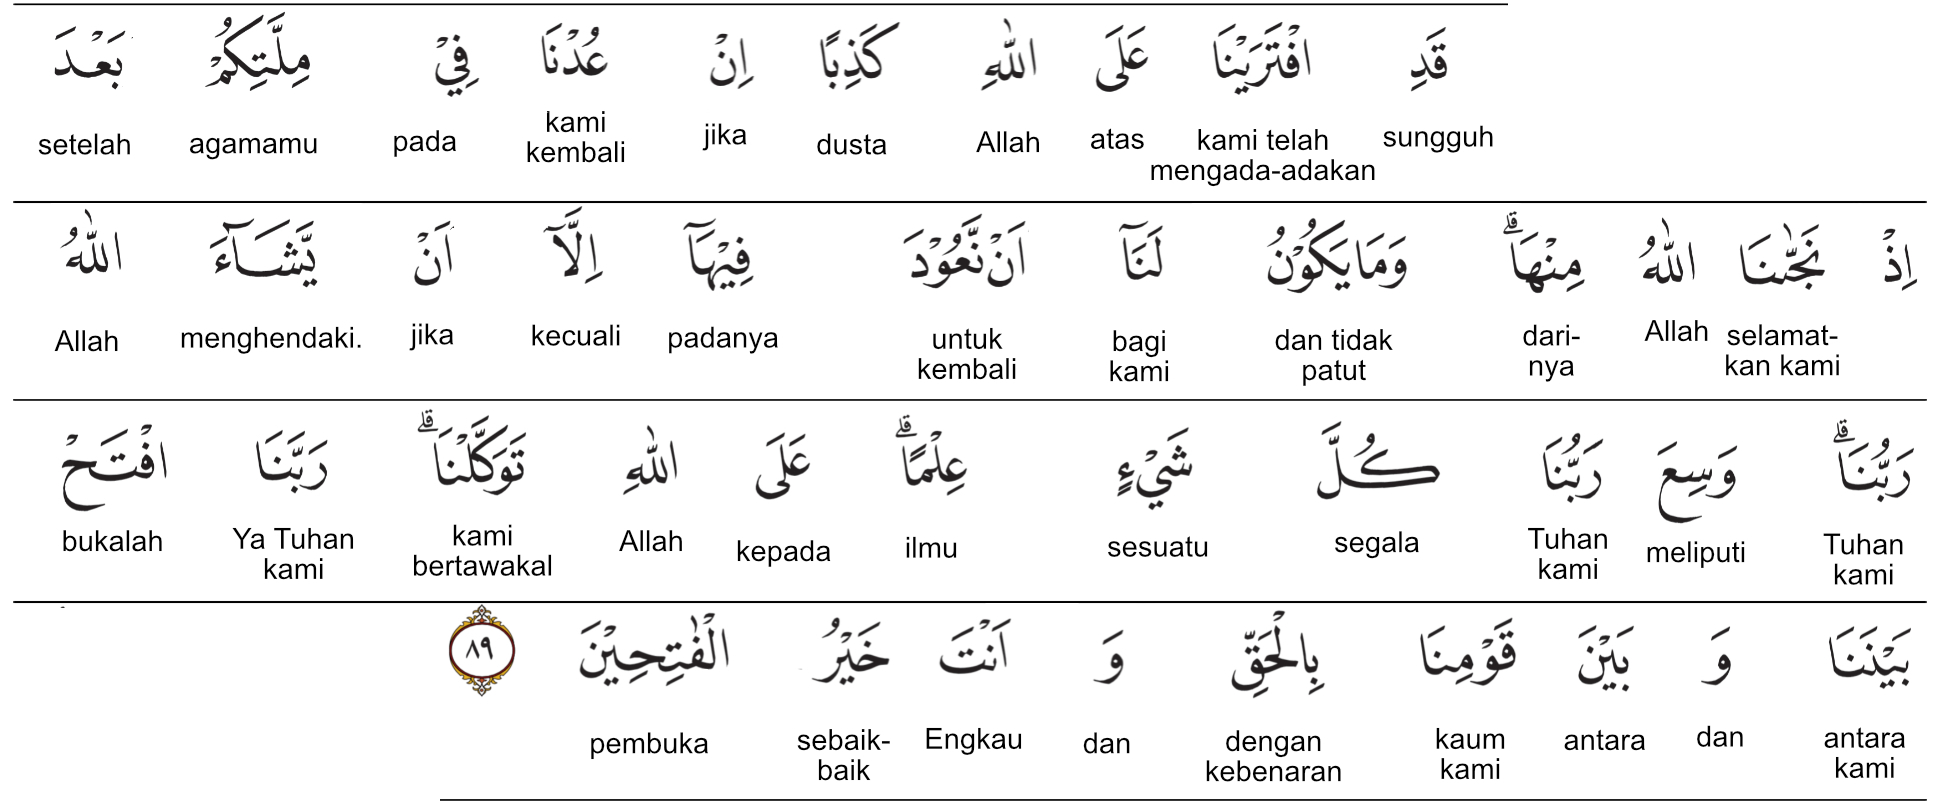 قَدِ افْتَرَيْنَا عَلَى اللّٰهِ كَذِبًا اِنْ عُدْنَا فِيْ مِلَّتِكُمْ بَعْدَ
sungguh kami telah mengada-adakan atas Allah dusta jika kami kembali pada agamamu setelah
اِذْ نَجّٰىنَا اللّٰهُ مِنْهَاۗ وَمَا يَكُوْنُ لَنَآ اَنْ نَّعُوْدَ فِيْهَآ اِلَّآ اَنْ يَّشَاۤءَ اللّٰهُ
selamat-kan kami Allah dari-nya dan tidak patut bagi kami untuk kembali padanya kecuali jika menghendaki. Allah
رَبُّنَاۗ وَسِعَ رَبُّنَا كُلَّ شَيْءٍ عِلْمًاۗ عَلَى اللّٰهِ تَوَكَّلْنَاۗ رَبَّنَا افْتَحْ
Tuhan kami meliputi Tuhan kami segala sesuatu ilmu kepada Allah kami bertawakal Ya Tuhan kami bukalah
بَيْنَنَا وَ بَيْنَ قَوْمِنَا بِالْحَقِّ وَ اَنْتَ خَيْرُ الْفٰتِحِيْنَ ٨٩
antara kami dan antara kaum kami dengan kebenaran dan Engkau sebaik-baik pembuka